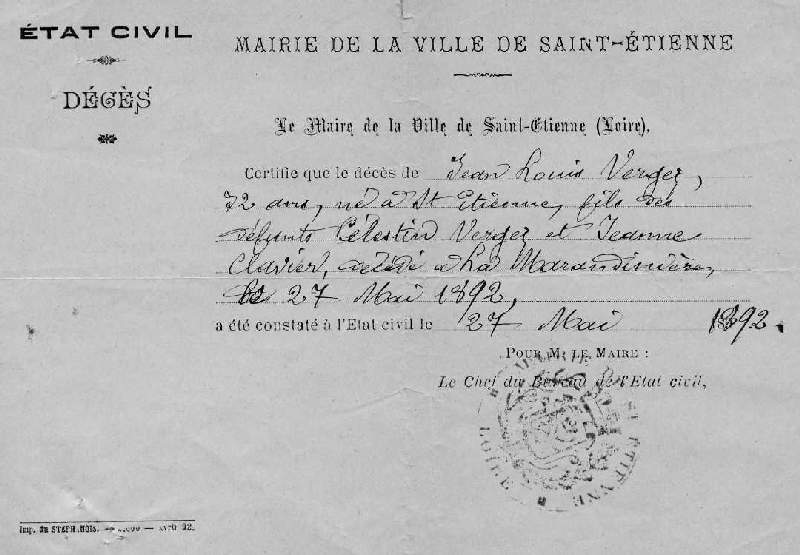 ÉTAT CIVIL
DÉCÈS
MAIRIE DE LA VILLE DE SAINT-ÉTIENNE
Le Maire de la Ville de Saint-Etienne (Loire),
Certifie que le décès de Jean Louis Verger,
72 ans, né à St Etienne, fils des
défunts Célestin Verger et Jeanne
Clavier, décédé à La Marandinière,
le 27 Mai 1892,
a été constaté à l'Etat civil le 27 Mai 1892.
POUR M. LE MAIRE :
Le Chef du Bureau de l'Etat civil,
MAIRIE DE ST ETIENNE
LOIRE
Imp. — Avril 92.